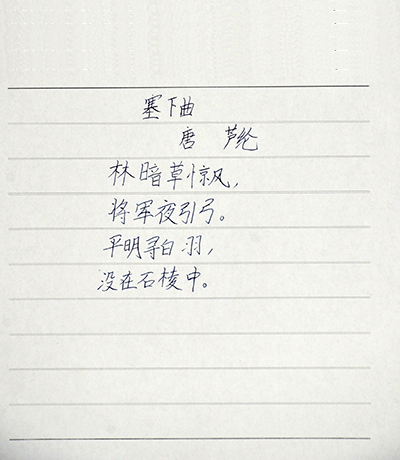 塞下曲
唐 芦纶
林暗草惊风,
将军夜引弓。
平明寻白羽,
没在石棱中。